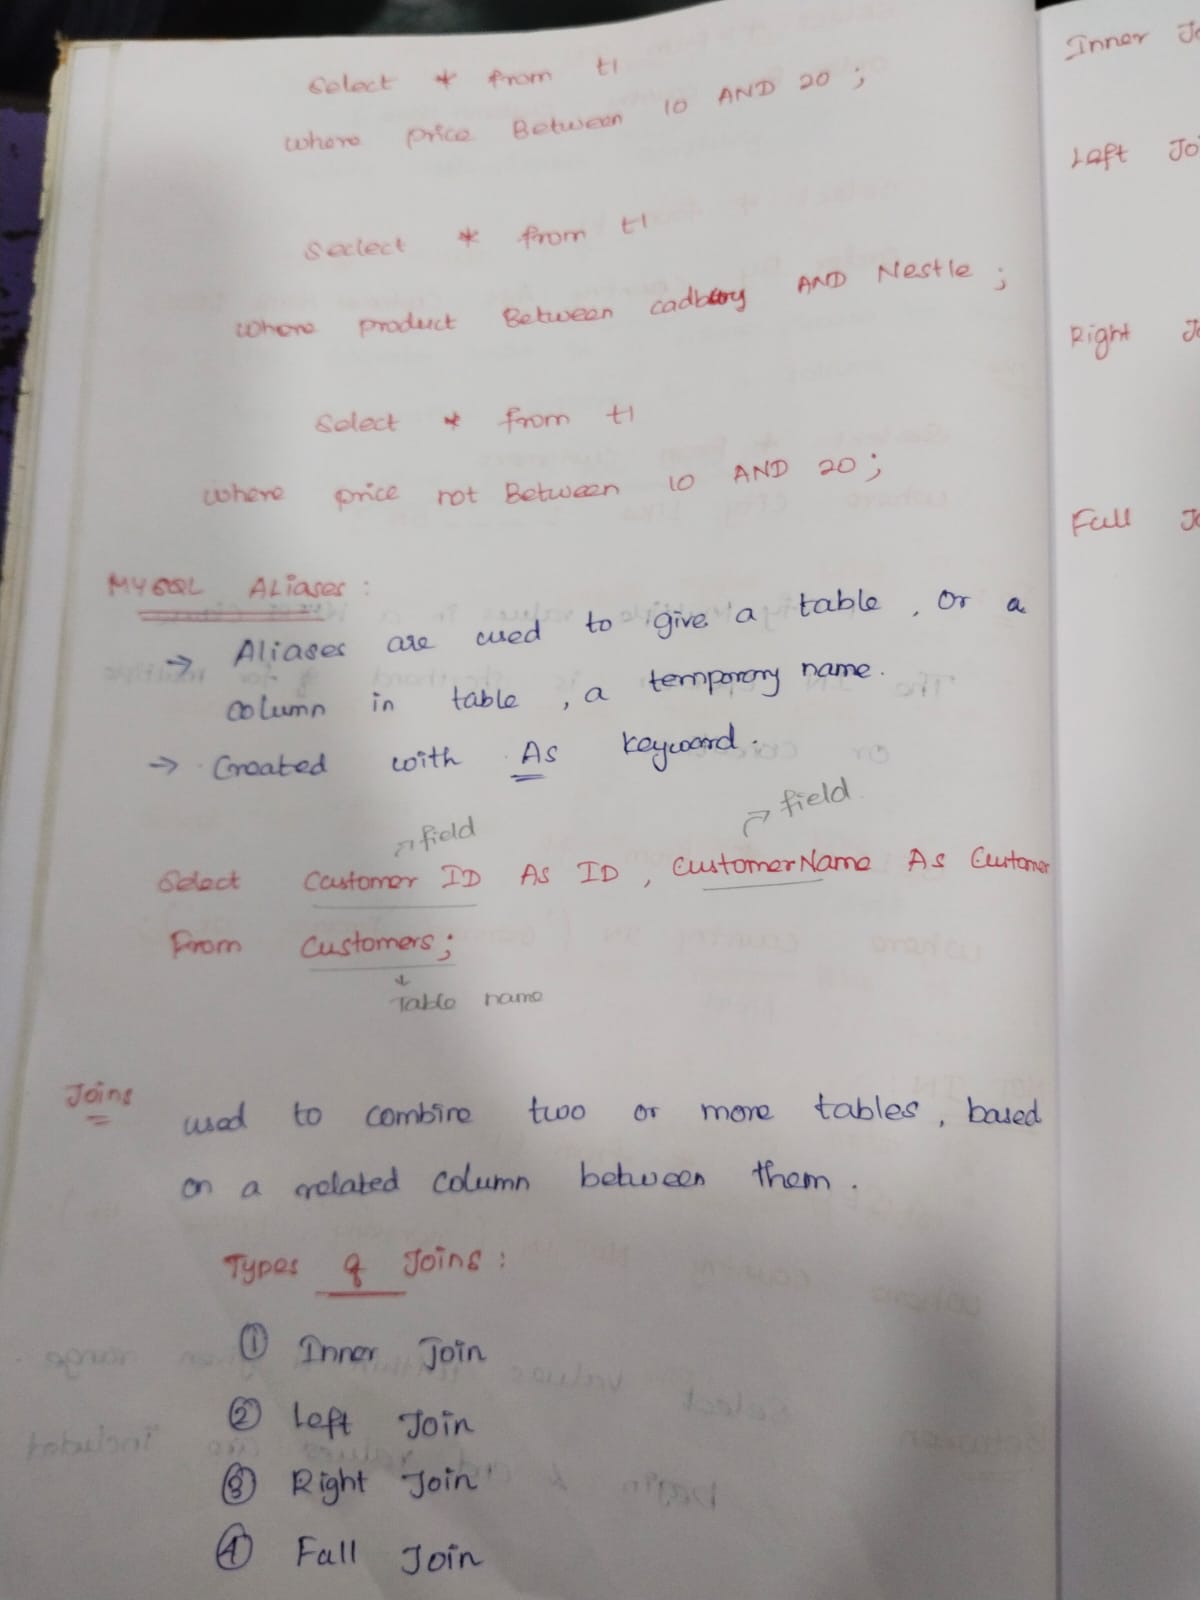 Select * from t1
where price Between 10 AND 20 ;
Seclect * from t1
where product Between cadbury AND Nestle ;
Select * from t1
where price not Between 10 AND 20 ;
MYSQL ALiases :
→ ALiases are used to give a table , or a
column in table , a temporary name .
→ Created with As keyword .
field
field
Select Customer ID As ID , CustomerName As Customer
From Customers ;
Table name
Joins
used to combine two or more tables , based
on a related column between them .
Types of Joins :
① Inner Join
② Left Join
③ Right Join
④ Full Join
Inner Jo
Left Jo
Right Jo
Full Jo